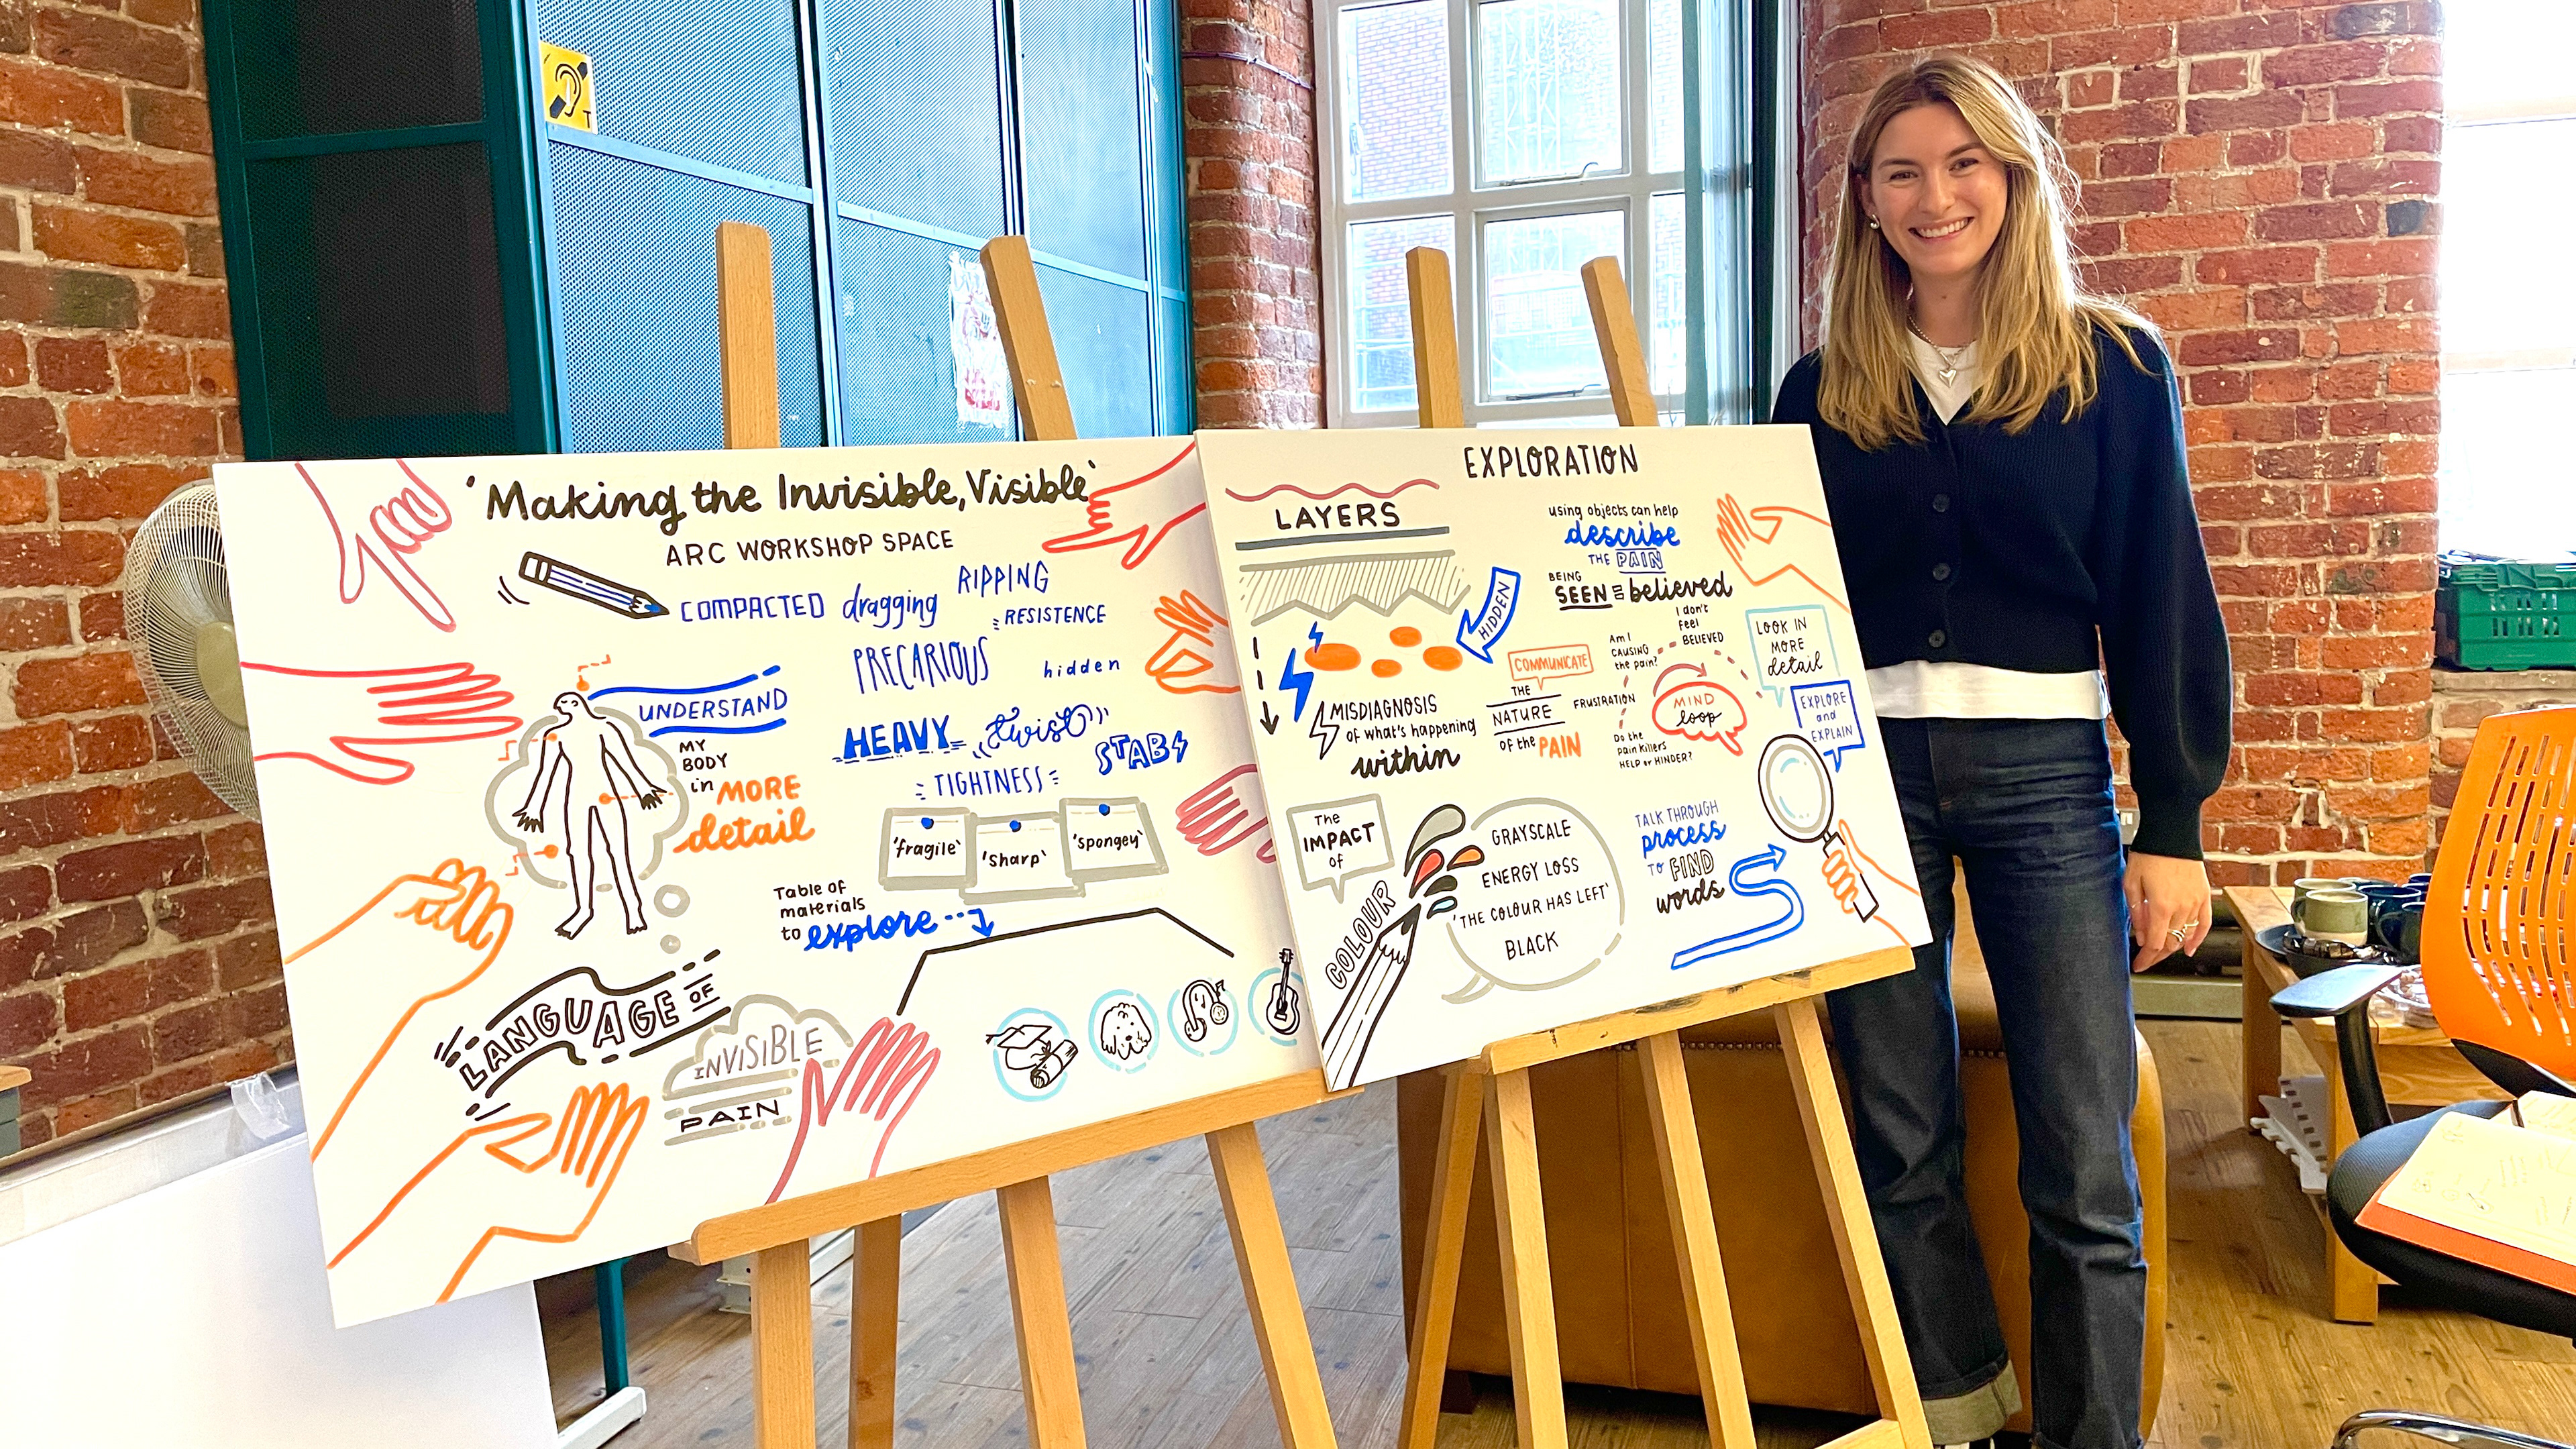 T
'Making the Invisible, Visible'
ARC WORKSHOP SPACE
COMPACTED
dragging
RIPPING
RESISTENCE
PRECARIOUS
hidden
HEAVY
twist
STAB
TIGHTNESS
UNDERSTAND
MY
BODY
in MORE
detail
'fragile'
'sharp'
'spongey'
Table of
materials
to explore
LANGUAGE OF
INVISIBLE
PAIN
EXPLORATION
LAYERS
HIDDEN
MISDIAGNOSIS
of what's happening
within
using objects can help
describe
THE PAIN
BEING
SEEN believed
COMMUNICATE
THE
NATURE
of the PAIN
FRUSTRATION
Am I
CAUSING
the pain?
I don't
feel
BELIEVED
MIND
loop
Do the
pain killers
HELP or HINDER?
LOOK IN
MORE
detail
EXPLORE
and
EXPLAIN
The
IMPACT
of
COLOUR
GRAYSCALE
ENERGY LOSS
'THE COLOUR HAS LEFT'
BLACK
TALK THROUGH
process
TO FIND
words